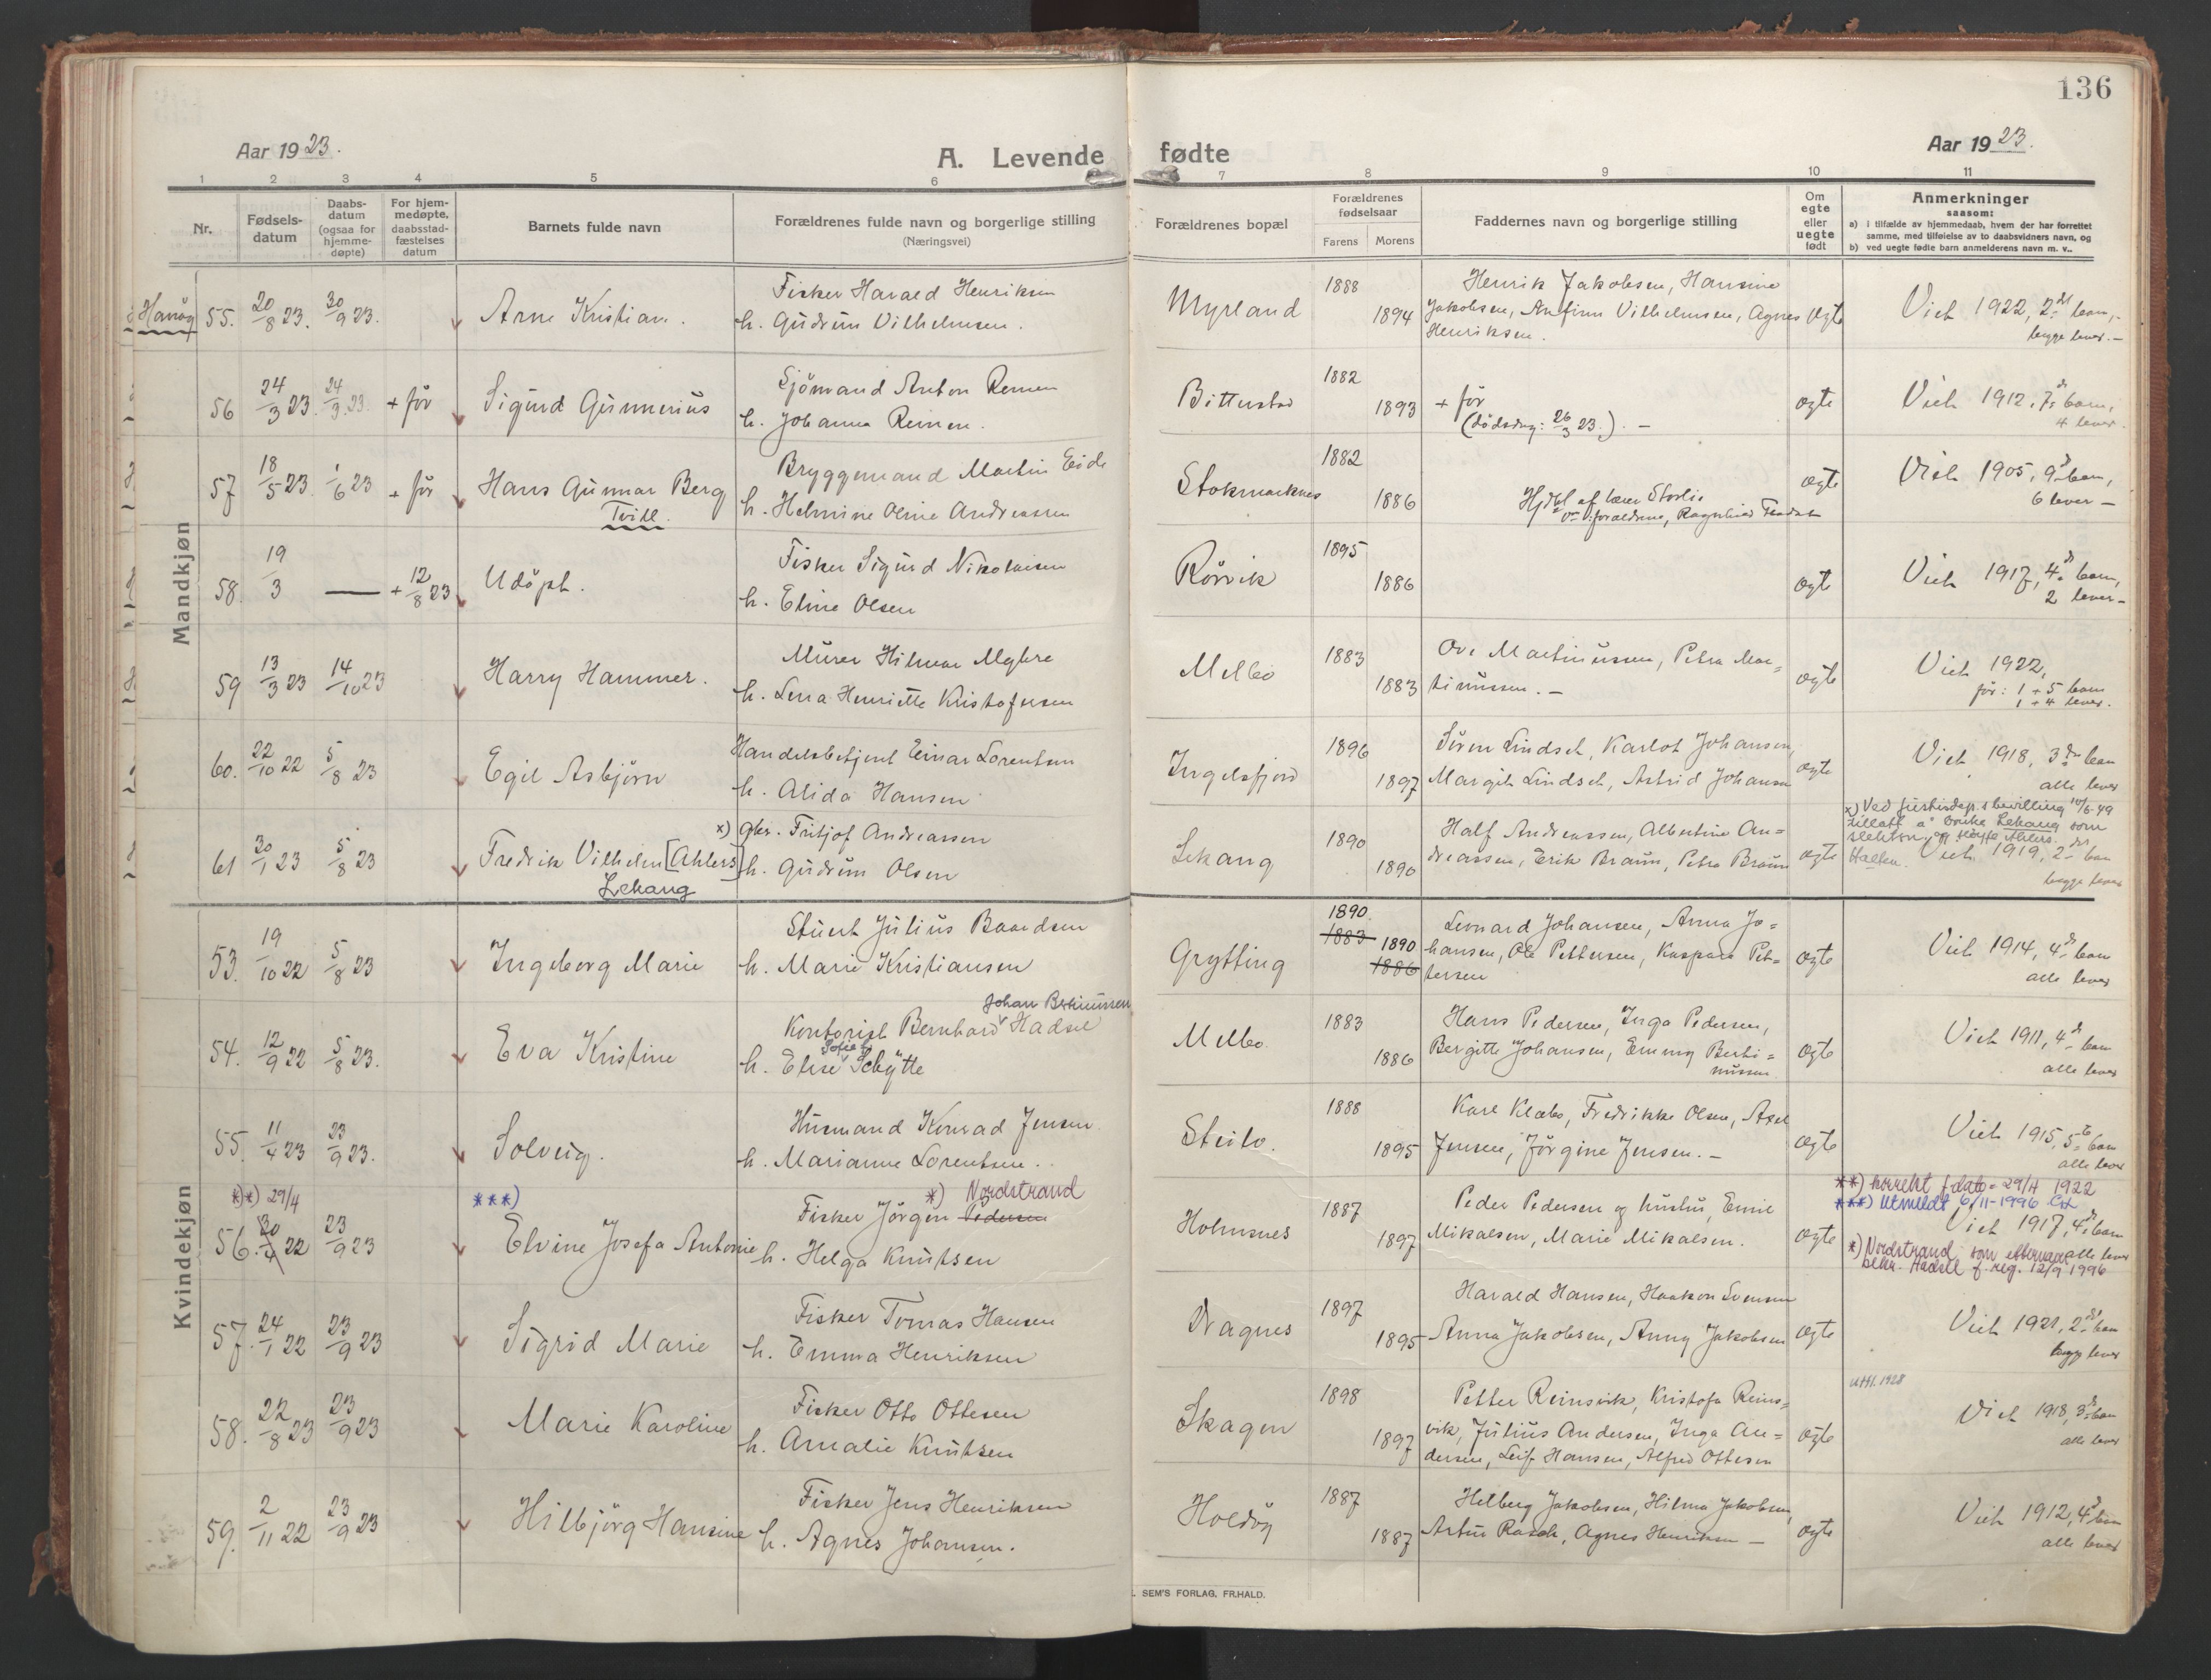 136
Aar 1923.
A. Levende fødte
Aar 1923.
1 2 3 4 5 6 7 8 9 10 11
Nr.
Fødsels-
datum
Daabs-
datum
(ogsaa for
hjemme-
døpte)
For hjem-
medøpte,
daabsstad-
fæstelses
datum
Barnets fulde navn
Forældrenes fulde navn og borgerlige stilling
(Næringsvei)
Forældrenes bopæl
Forældrenes
fødselsaar
Farens Morens
Faddernes navn og borgerlige stilling
Om
egte
eller
uegte
født
Anmerkninger
saasom:
a) i tilfælde av hjemmedaab, hvem der har forrettet
samme, med tilføielse av to daabsvidners navn, og
b) ved uegte fødte barn anmelderens navn m. v..
Mandkjøn
55. 20/8 23. 30/9 23. Arne Kristian.
Fisker Harald Henriksen
h. Gudrun Vilhelmsen.
Myrland 1888 1894
Henrik Jakobsen, Hansine
Jakobsen, Anfinn Vilhelmsen, Agnes
Henriksen.
egte
Viet 1922, 2det barn,
begge lever. –
56 24/3 23. 24/3 23. + før Sigurd Gunnerius
Sjömand Anton Reinen
h. Johanna Reinen.
Bitterstad 1882 1893
+ før
(dödsdag: 26/3 23.). –
egte
Viet 1912, 7de barn,
4 lever.
57 18/5 23. 1/6 23 + før Hans Gunnar Berg
Tvill.
Bryggemand Martin Eide
h. Helmine Oline Andreassen
Stokmarknes 1882 1886
Hjdbt af lærer Storlie
egte
Viet 1905, 9de barn,
6 lever –
58. 19/3 — + 12/8 23 Udöpt.
Fisker Sigurd Nikolaisen
h. Eline Olsen
Rörvik 1895 1886
egte
Viet 1917, 4de barn,
2 lever –
59 13/3 23 14/10 23 Harry Hammer.
Murer Hilmar Myhre
h. Lena Henriette Kristofersen
Melbo 1883 1883
Ove Martinussen, Petra Mar=
tinussen. –
egte
Viet 1922,
för: 1 + 5 barn
1 + 4 lever.
60. 22/10 22 5/8 23 Egil Asbjörn
Handelsbetjent Einar Lorentsen
h. Alida Hansen
Ingelsfjord 1896 1897
Sören Lindset, Karlot Johansen,
Margit Lindset, Astrid Johansen
egte
Viet 1918, 3de barn
alle lever
61 30/1 23 5/8 23 Fredrik Vilhelm [Ahlers] x)
Lekang
Gbr. Fritjof Andreassen
h. Gudrun Olsen
Lekang 1890 1890
Half Andreassen, Albertine An=
dreassen, Erik Braun, Petra Braun
egte
x) Ved justisdep.s bevilling 10/6-49
tillatt å bruke Lekang som
slektsn. og sløyfe Ahlers.
Viet 1919, 2det barn
begge lever
Kvindekjøn
53. 19/10 22 5/8 23 Ingeborg Marie
Stuert Julius Baardsen
h. Marie Kristiansen
Grytting 1890 1883 1890 1886
Leonard Johansen, Anna Jo=
hansen, Ole Pettersen, Kaspara Pet=
tersen
egte
Viet 1914, 4de barn
alle lever
54. 12/9 22 5/8 23. Eva Kristine
Johan Bertinussen
Kontorist Bernhard Hadsel
Sofie
h. Elise Schytte
Melbo 1883 1886
Hans Pedersen, Inga Pedersen,
Bergitte Johansen, Emmy Berti=
nussen.
egte
Viet 1911, 4de barn
alle lever
55. 11/4 23 23/9 23. Solveig.
Husmand Konrad Jensen
h. Marianne Lorentsen.
Steilo. 1888 1895
Karl Klæbo, Fredrikke Olsen, Axel
Jensen, Jörgine Jensen. –
egte
Viet 1915, 5te barn
alle lever
**) 29/4 ***)
56. 30/4 22 23/9 23 Elvine Josefa Antonie
*) Nordstrand
Fisker Jörgen Pedersen
h. Helga Knutsen
Holmsnes 1887 1897
Peder Pedersen og hustru, Emil
Mikalsen, Marie Mikalsen.
egte
**) korrekt f.dato = 29/4 1922
***) Utmeldt 6/11-1996
Viet 1917, 4de barn
alle lever
*) Nordstrand som etternavn
bekr. Hadsel f.reg. 12/9 1996
57. 24/1 22 23/9 23 Sigrid Marie
Fisker Tomas Hansen
h. Emma Henriksen
Dragnes 1897 1895
Harald Hansen, Haakon Svensen
Anna Jakobsen, Anny Jakobsen
egte
Viet 1921, 2det barn
begge lever
58. 22/8 23 23/9 23 Marie Karoline
Fisker Otto Ottesen
h. Amalie Knutsen
Skagen 1898 1897
Petter Reinsvik, Kristofa Reins=
vik, Julius Andersen, Inga An=
dersen, Leif Hansen, Alfred Ottesen
egte
Utfl. 1928
Viet 1918, 3de barn
alle lever
59. 2/11 22 23/9 23 Hilbjörg Hansine
Fisker Jens Henriksen
h. Agnes Johansen.
Holdöy 1887 1887
Helberg Jakobsen, Hilma Jakobsen,
Artur Rasch, Agnes Henriksen –
egte
Viet 1912, 4de barn
alle lever
SEM'S FORLAG, FR.HALD.